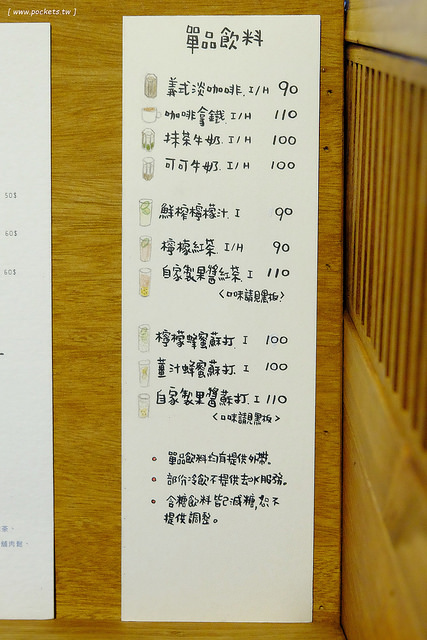 [ www.pockets.tw ]
單品飲料
義式淡咖啡. I/H 90
咖啡拿鐵. I/H 110
抹茶牛奶. I/H 100
可可牛奶. I/H 100
鮮榨檸檬汁. I 90
檸檬紅茶. I/H 90
自家製果醬紅茶. I 110
<口味請見黑板>
檸檬蜂蜜蘇打. I 100
薑汁蜂蜜蘇打. I 100
自家製果醬蘇打. I 110
<口味請見黑板>
• 單品飲料均有提供外帶。
• 部份冷飲不提供去冰服務。
• 含糖飲料皆已減糖,恕不
提供調整。
50$
60$
60$
茶。